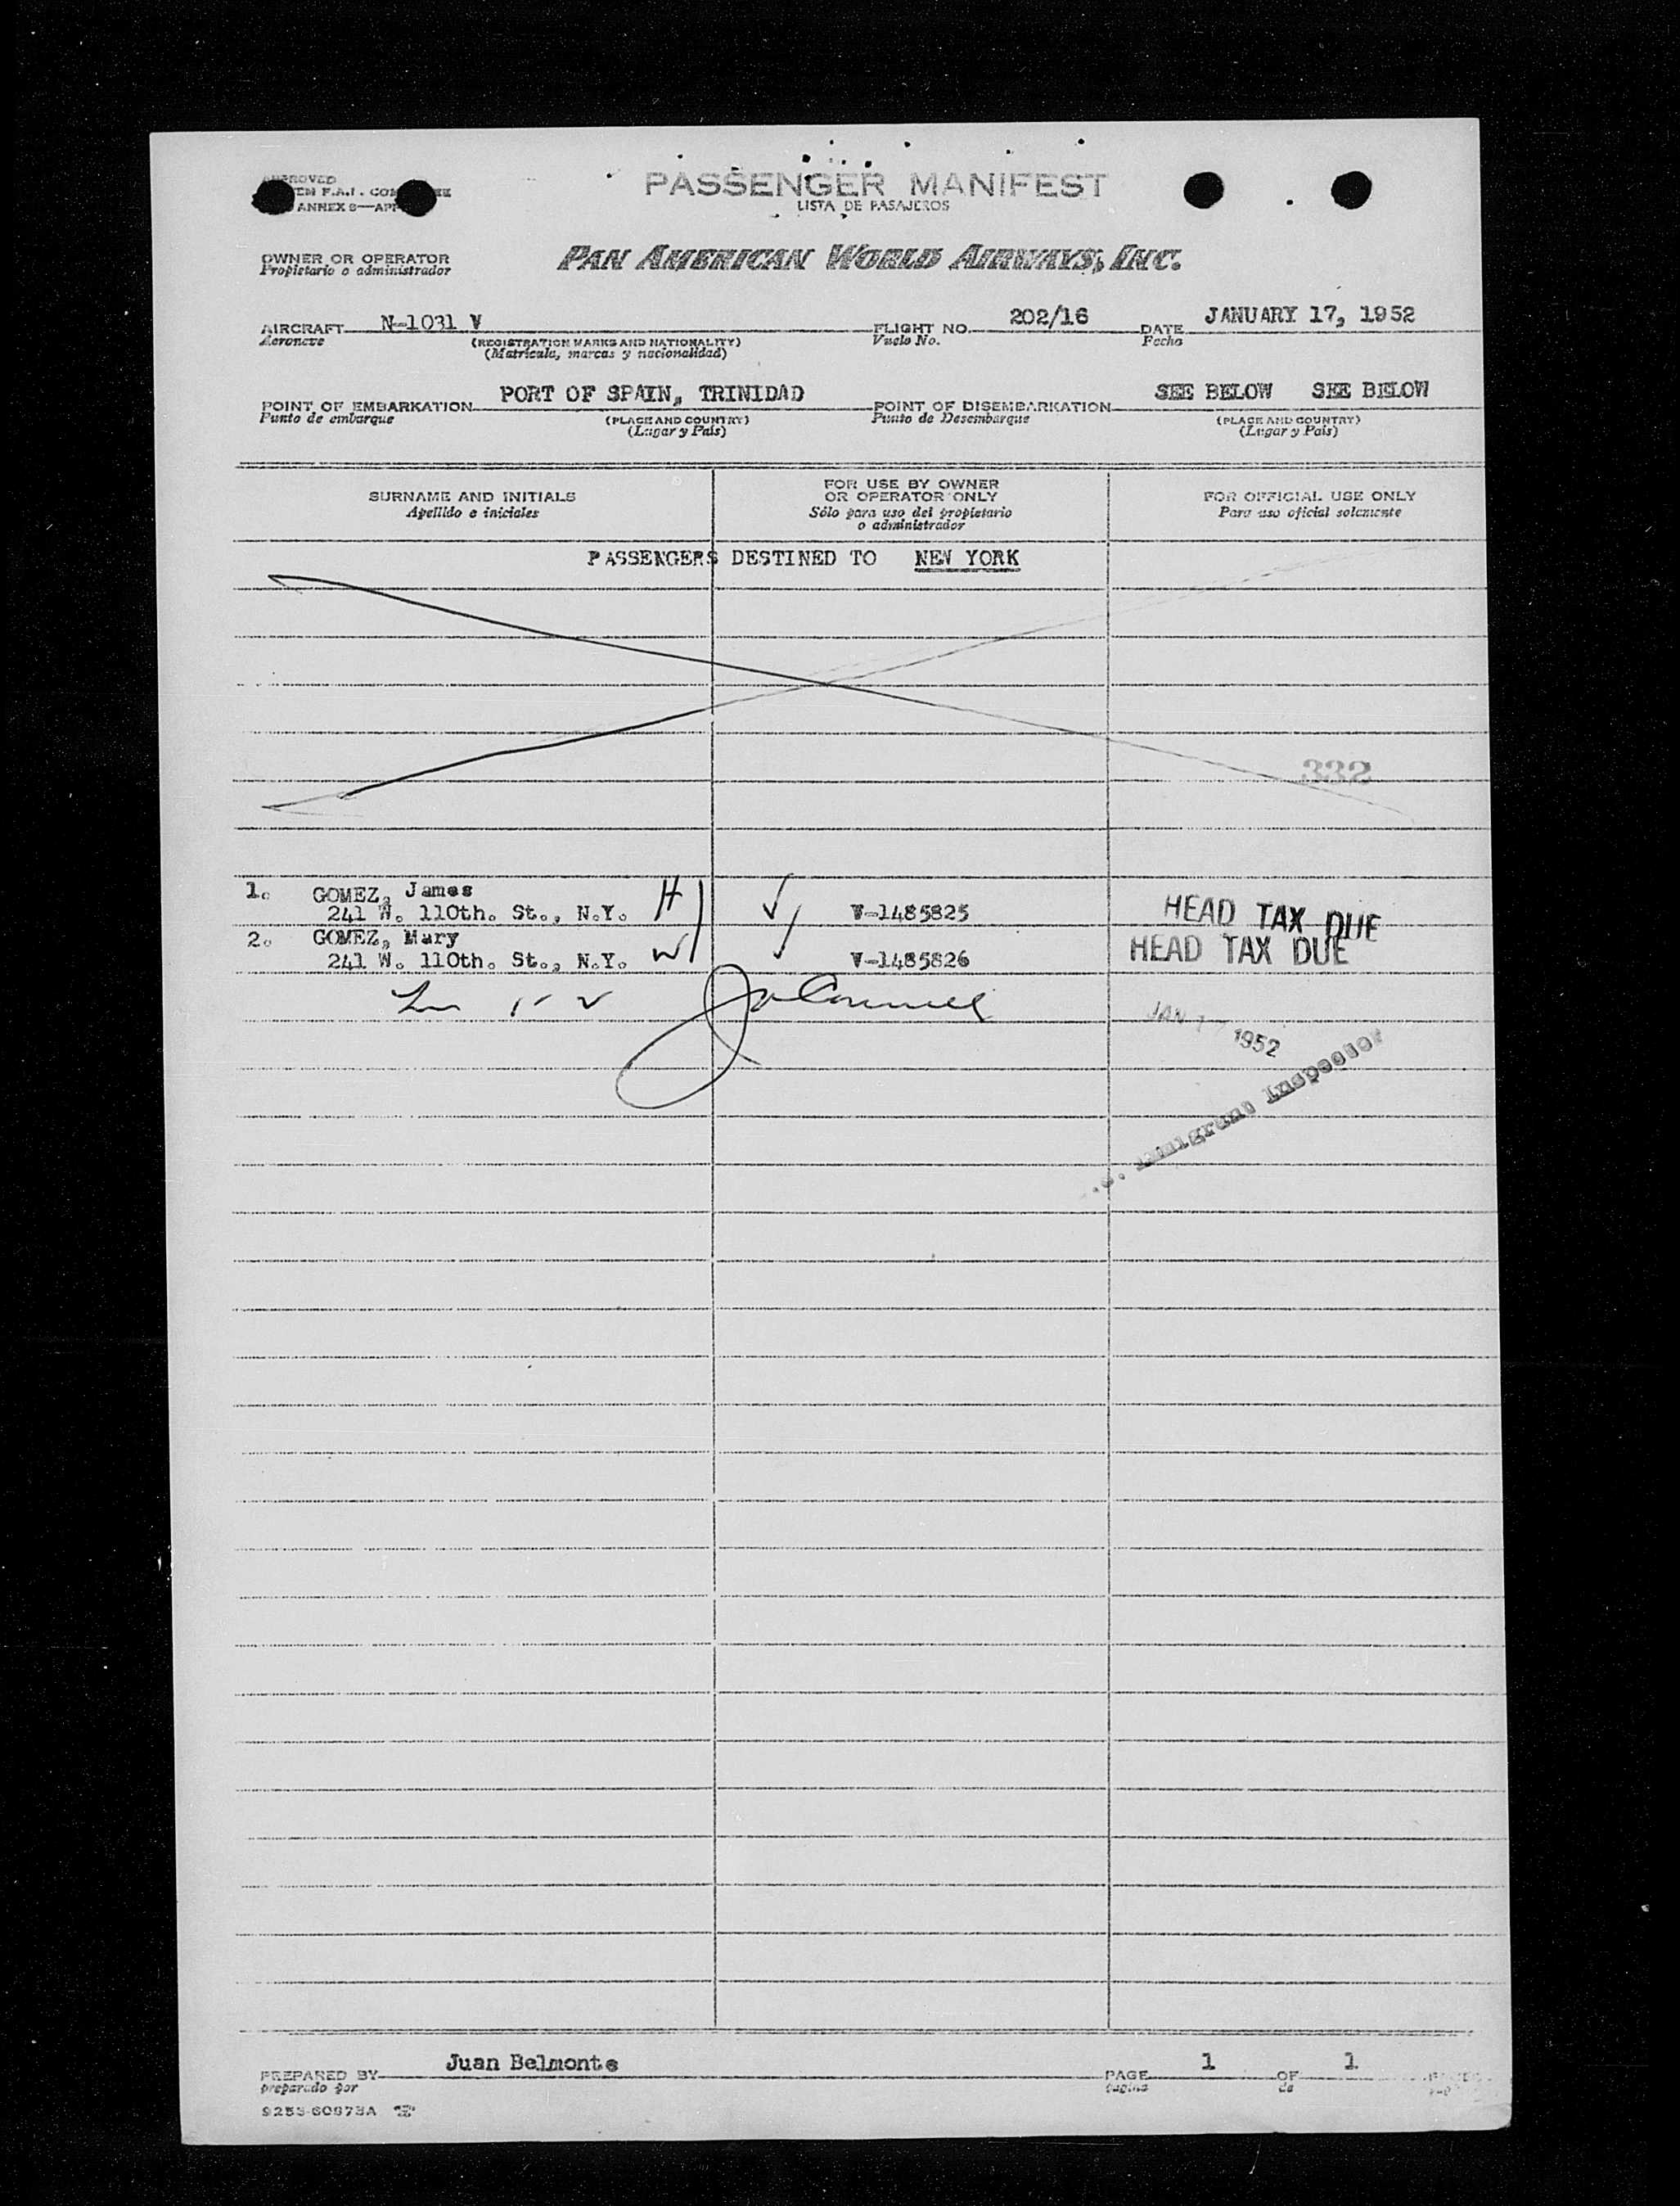 APPROVED
F.A.I.
ANNEX 8—
PASSENGER MANIFEST
LISTA DE PASAJEROS
OWNER OR OPERATOR
Propietario o administrador
PAN AMERICAN WORLD AIRWAYS, INC.
AIRCRAFT N-1031 V FLIGHT NO. 202/16 DATE JANUARY 17, 1952
Aeronave (REGISTRATION MARKS AND NATIONALITY) Vuelo No. Fecha
(Matrícula, marcas y nacionalidad)
POINT OF EMBARKATION PORT OF SPAIN, TRINIDAD POINT OF DISEMBARKATION SEE BELOW SEE BELOW
Punto de embarque (PLACE AND COUNTRY) Punto de Desembarque (PLACE AND COUNTRY)
(Lugar y País) (Lugar y País)
SURNAME AND INITIALS
Apellido e iniciales
FOR USE BY OWNER
OR OPERATOR ONLY
Sólo para uso del propietario
o administrador
FOR OFFICIAL USE ONLY
Para uso oficial solamente
PASSENGERS DESTINED TO NEW YORK
332
1. GOMEZ, James H
241 W. 110th. St., N.Y. V-1485825 HEAD TAX DUE
2. GOMEZ, Mary W
241 W. 110th. St., N.Y. V-1485826 HEAD TAX DUE
JAN 17 1952
Immigrant Inspector
PREPARED BY Juan Belmonte PAGE 1 OF 1
preparado por página de
9253-60673A